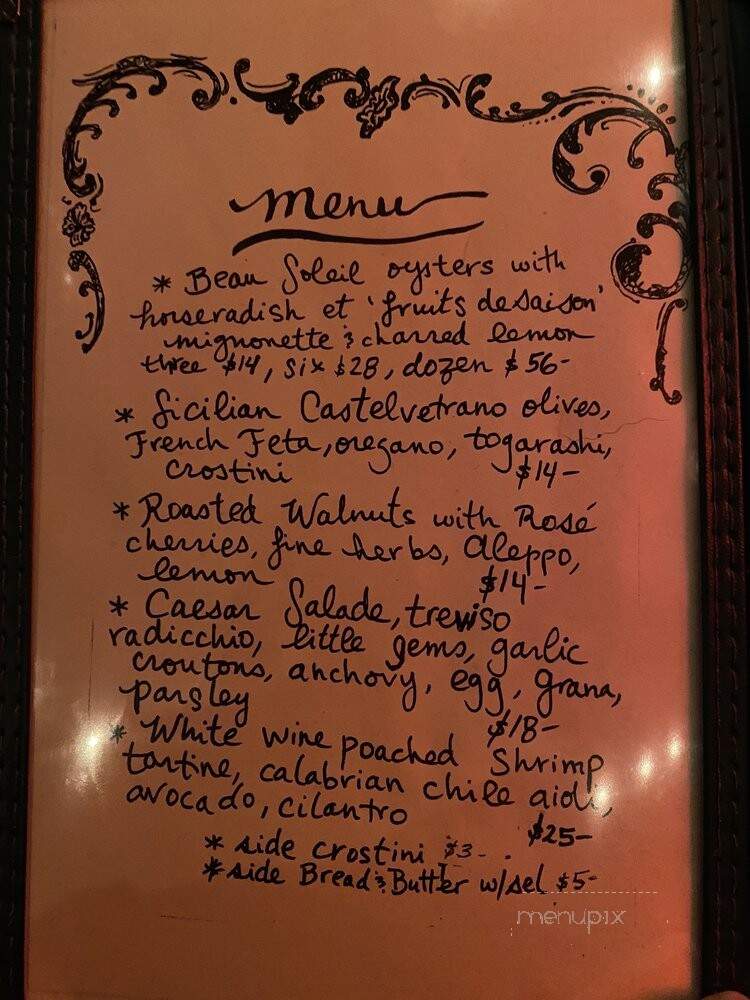 menu
* Beau Soleil oysters with
horseradish et 'fruits de saison'
mignonette & charred lemon
three $14, six $28, dozen $56-
* Sicilian Castelvetrano olives,
French Feta, oregano, togarashi,
crostini $14-
* Roasted Walnuts with Rosé
cherries, fine herbs, Aleppo,
lemon $14-
* Caesar Salade, treviso
radicchio, little gems, garlic
croutons, anchovy, egg, grana,
parsley $18-
* White wine poached Shrimp
tartine, calabrian chile aioli,
avocado, cilantro $25-
* side crostini $3-
* side Bread & Butter w/sel $5-
menupix